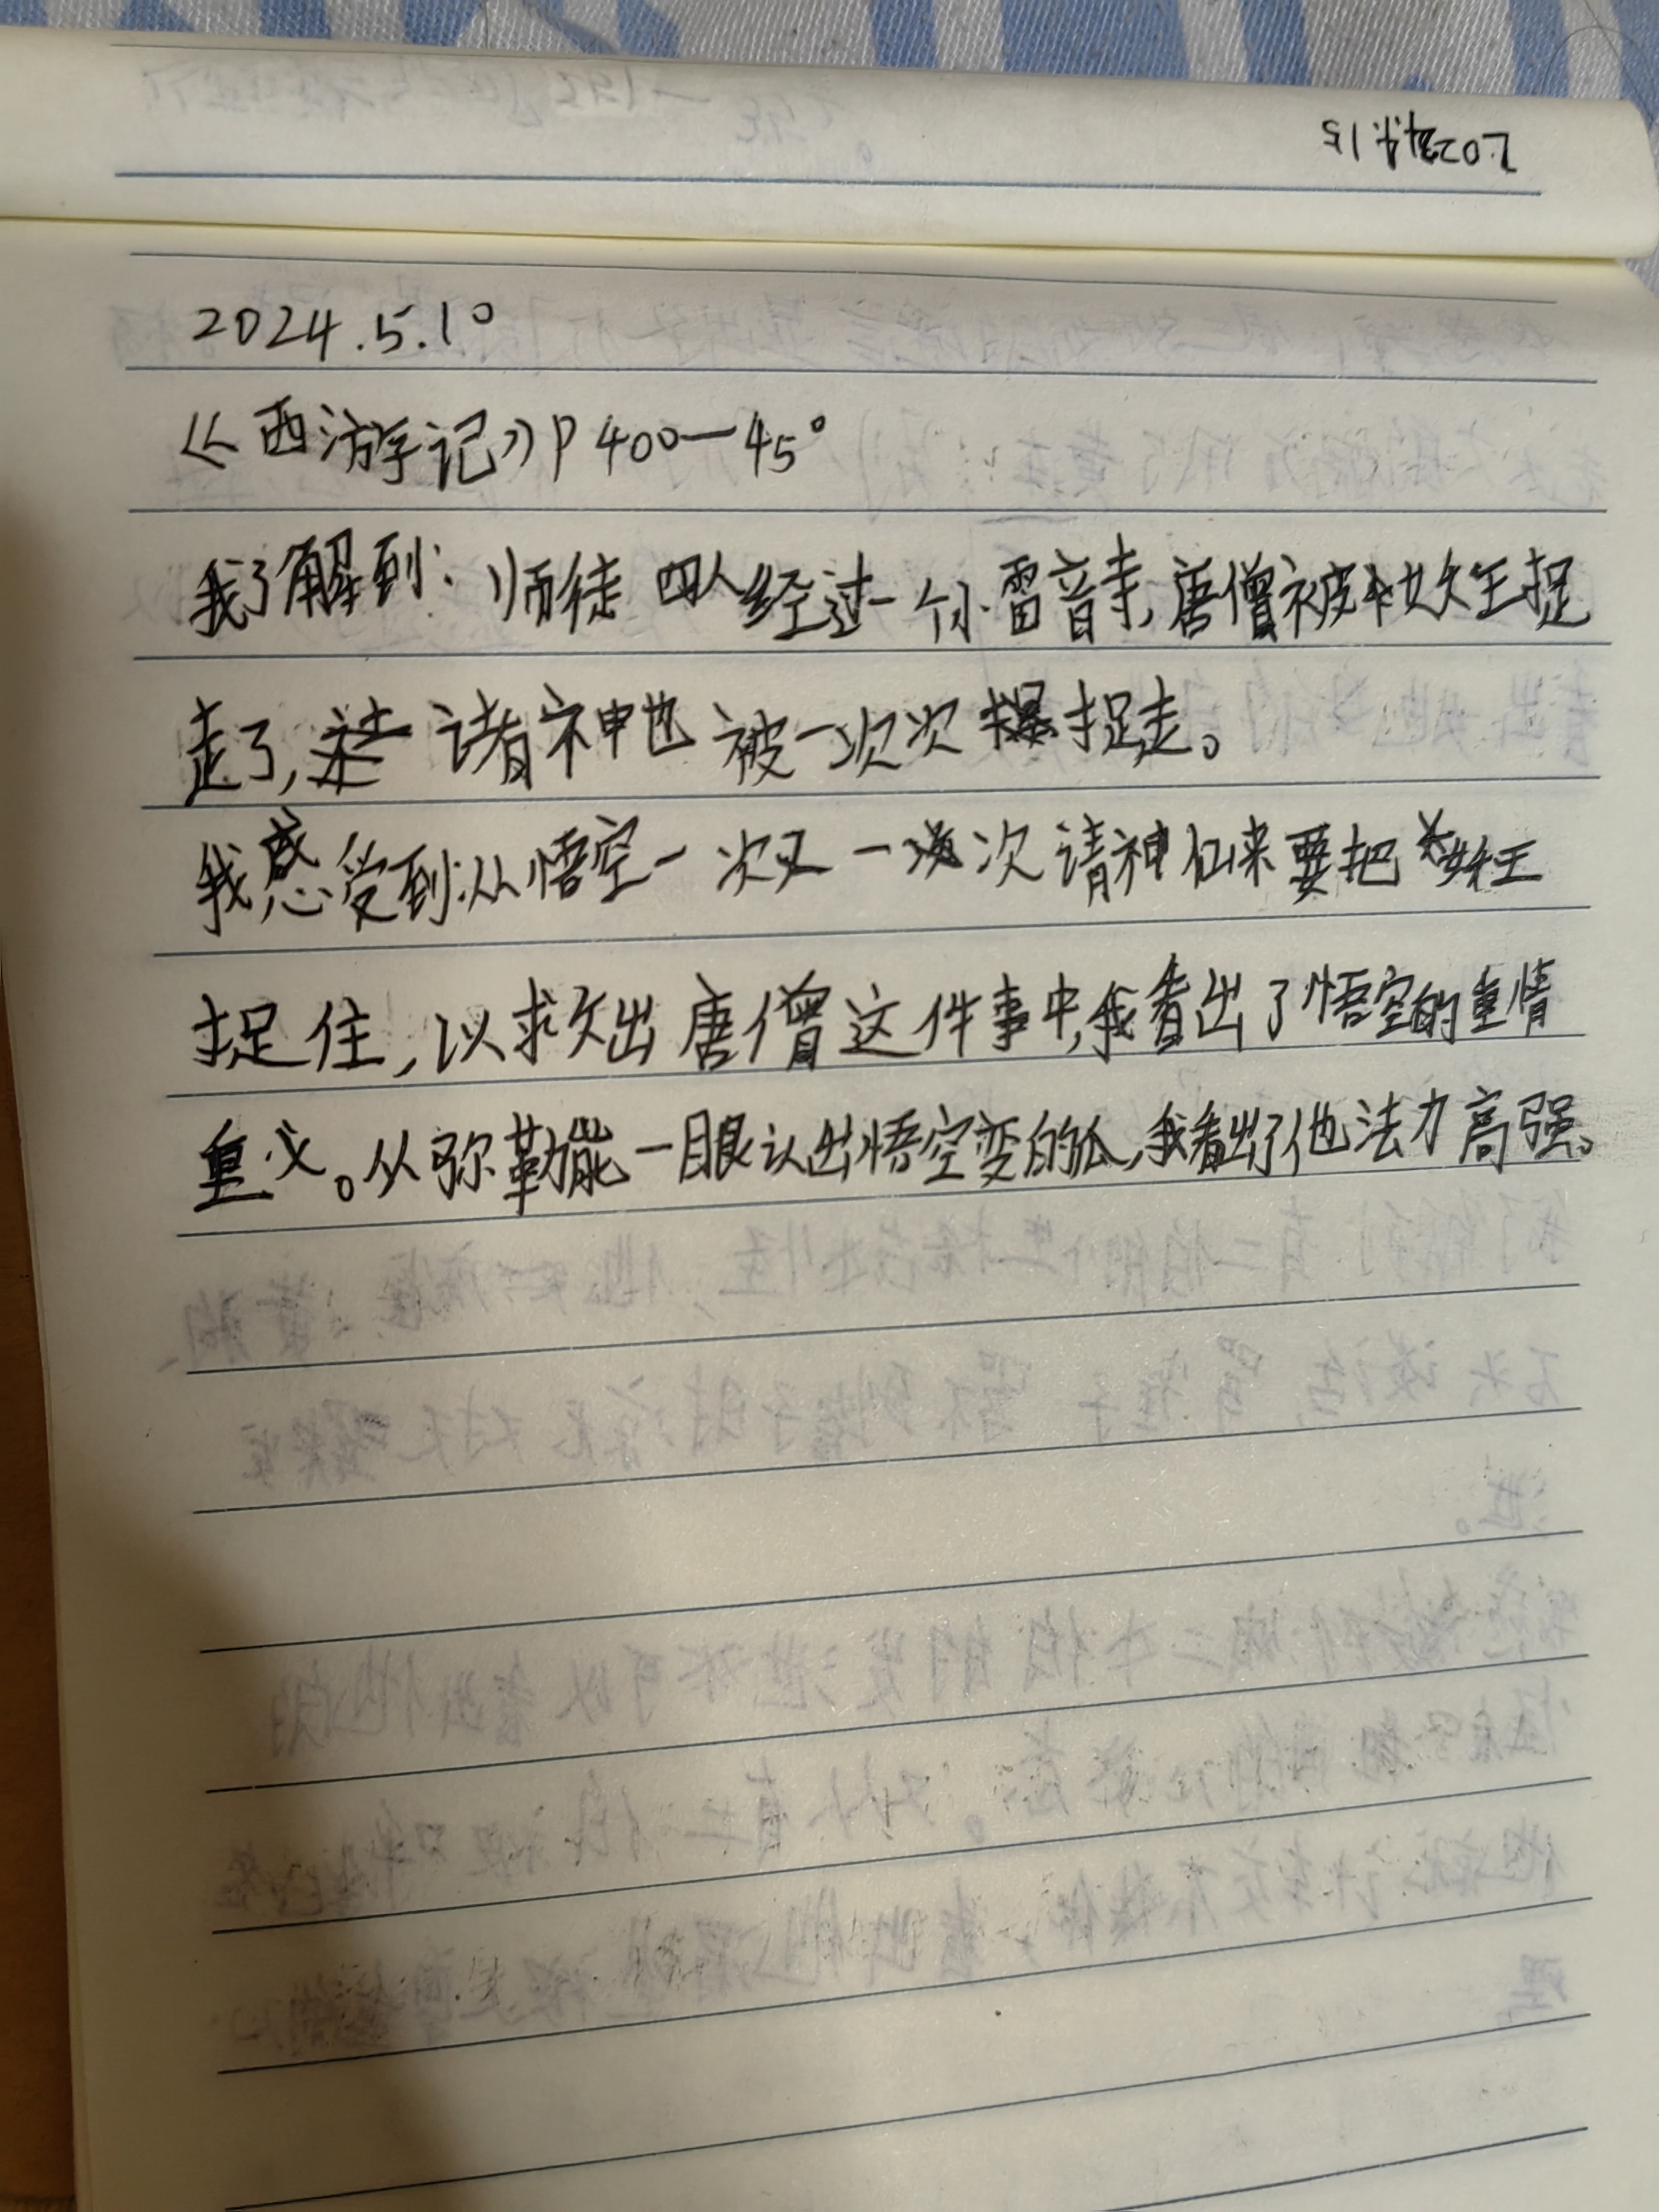 2024.5.10
《西游记》P400—450
我了解到：师徒四人经过一个小雷音寺，唐僧被妖王捉
走了，诸神也被一次次捉走。
我感受到：从悟空一次又一次请神仙来要把妖王
捉住，以求救出唐僧这件事中，我看出了悟空的重情
重义。从弥勒能一眼认出悟空变的瓜，我看出了他法力高强。